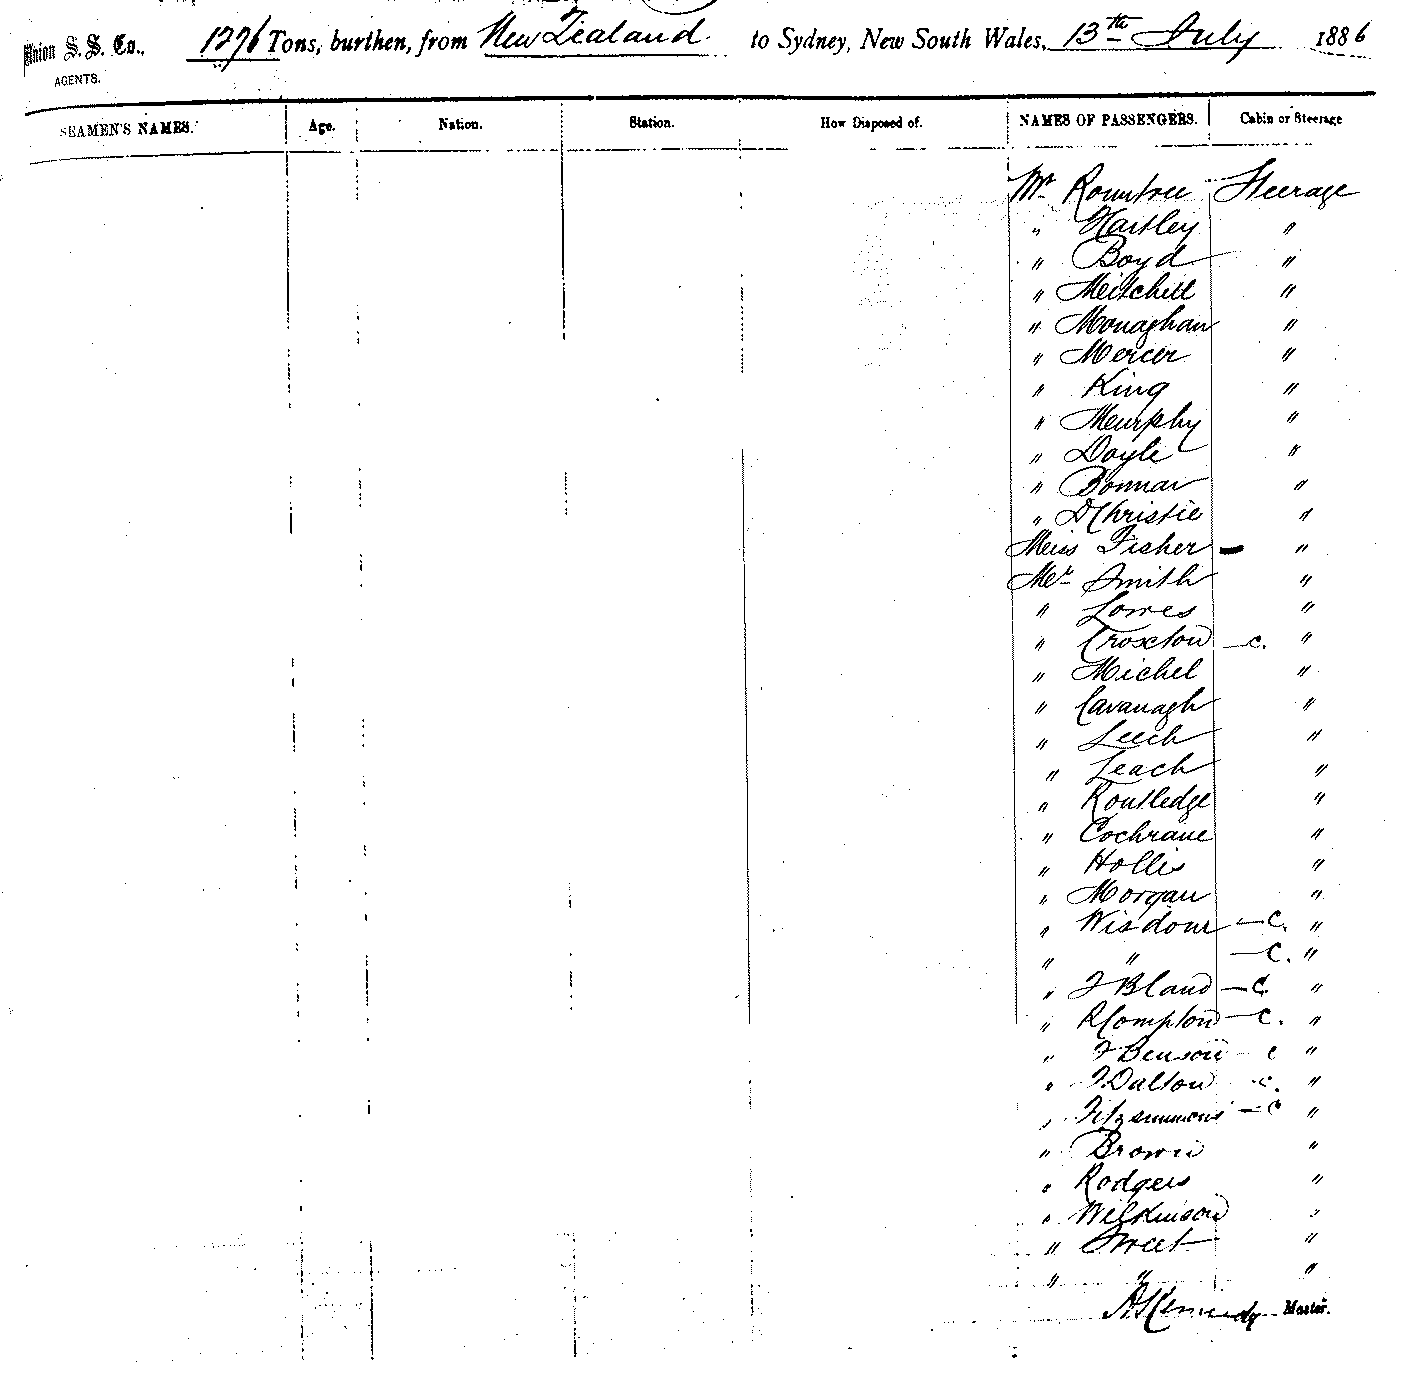 Union S. S. Co., 1276 Tons, burthen, from New Zealand to Sydney, New South Wales, 13th July 1886
AGENTS.
SEAMEN'S NAMES. Age. Nation. Station. How Disposed of. NAMES OF PASSENGERS. Cabin or Steerage
Mr Rountree Steerage
" Hartley "
" Boyd "
" Mitchell "
" Monaghan "
" Mercer "
" King "
" Murphy "
" Doyle "
" Bonnar "
" D Christie "
Miss Fisher - "
Mr Smith "
" Lowes "
" Croxton - c. "
" Michel "
" Cavanagh "
" Leech "
" Leach "
" Routledge "
" Cochrane "
" Hollis "
" Morgan "
" Wisdom - C. "
" " - C. "
" F Bland - C. "
" R Compton - C. "
" F Benson - c "
" F Dalton - c. "
" Fitzsimmons - C "
" Brown "
" Rodgers "
" Wilkinson "
" Sweet "
" " "
A Kennedy Master.